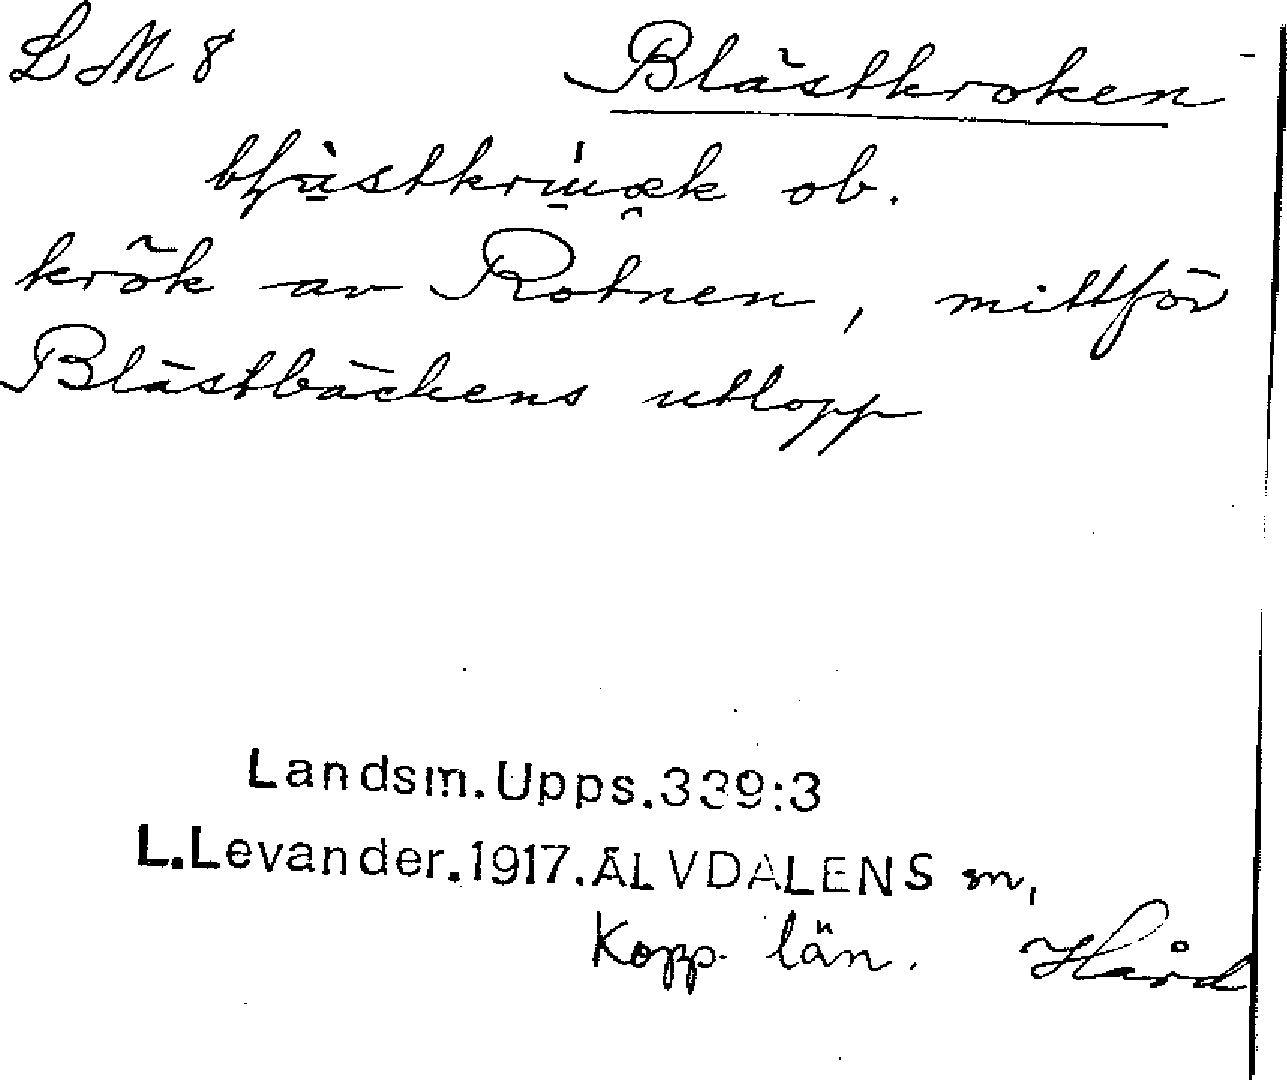 LM 8 Blästkroken
ob.
krök av Rotnen, mittför
Blästbäckens utlopp
Landsm.Upps.339:3
L.Levander.1917.ÄLVDALENS sn,
Kopp. län. Hård